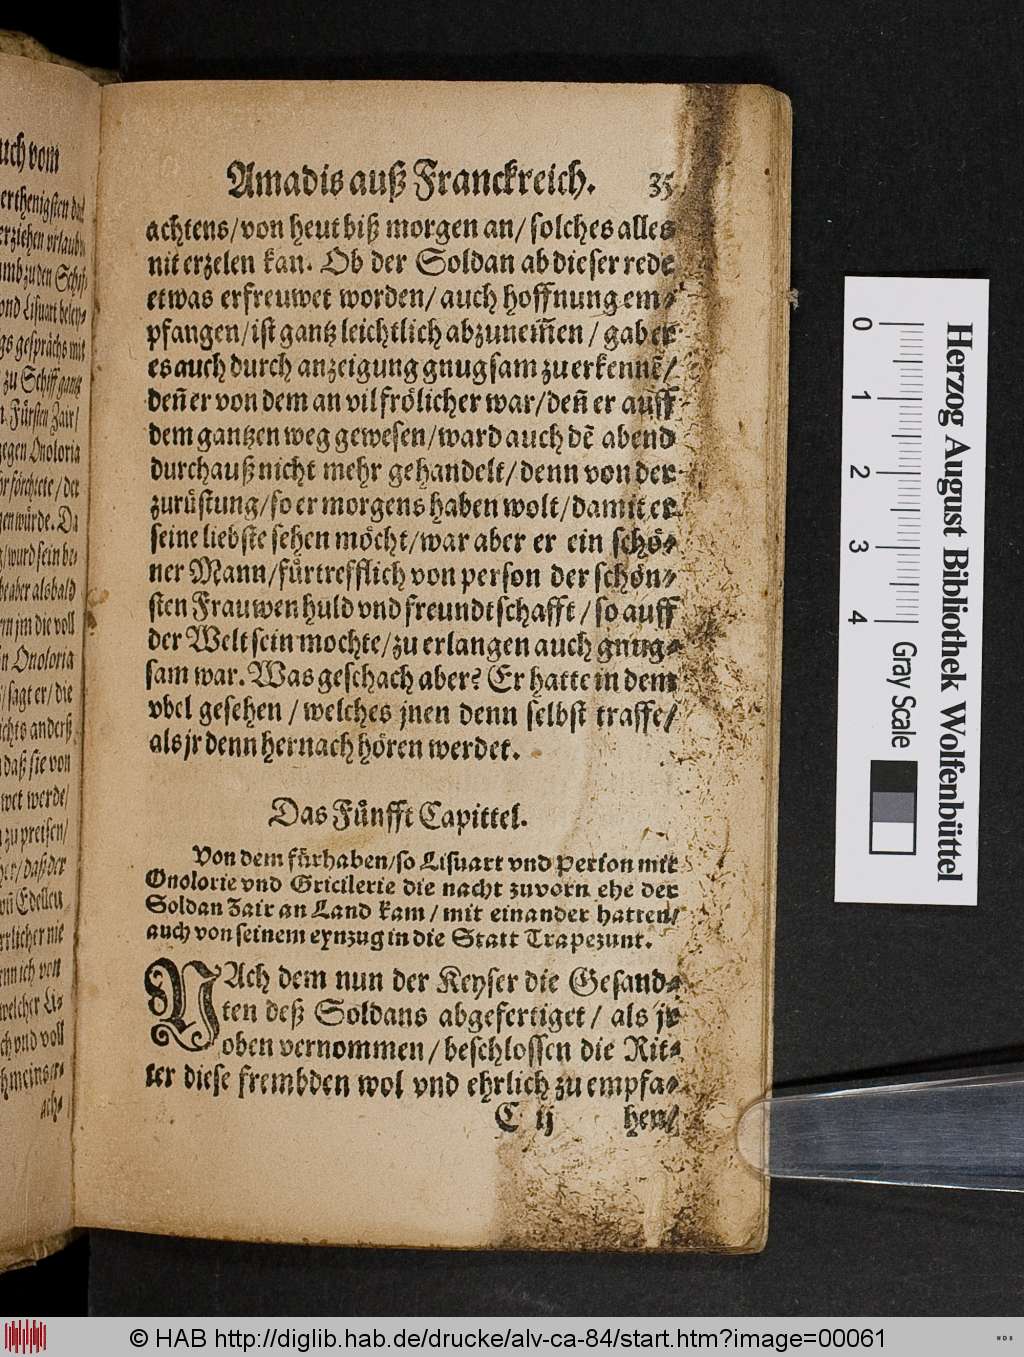 uch vom
Amadis auß Franckreich. 35
achtens/von heut biß morgen an/ solches alles
nit erzelen kan. Ob der Soldan ab dieser rede
etwas erfreuwet worden/ auch hoffnung em⸗
pfangen/ist gantz leichtlich abzunem̃en / gab er
es auch durch anzeigung gnugsam zu erkennẽ/
deñ er von dem an vil frölicher war/deñ er auff
dem gantzen weg gewesen/ward auch dẽ abend
durchauß nicht mehr gehandelt/denn von der
zurüstung/so er morgens haben wolt/damit er
seine liebste sehen möcht/war aber er ein schö⸗
ner Mann/fürtrefflich von person der schön⸗
sten Frauwen huld vnd freundtschafft/so auff
der Welt sein mochte/zu erlangen auch gnug⸗
sam war. Was geschach aber? Er hatte in dem
vbel gesehen /welches jnen denn selbst traffe/
als jr denn hernach hören werdet.
Das Fünfft Capittel.
Von dem fürhaben/so Lisuart vnd Perion mit
Onolorie vnd Gricilerie die nacht zuvorn ehe der
Soldan Zair an Land kam/ mit einander hatten/
auch von seinem eynzug in die Statt Trapezunt.
NAch dem nun der Keyser die Gesand⸗
ten deß Soldans abgefertiget/ als jr
oben vernommen/beschlossen die Rit⸗
ter diese frembden wol vnd ehrlich zu empfa⸗
C ij hen/
erthenigsten
erziehen vrlaub
vmb zu den Schif
vnd Lisuart
gs gesprächs mit
zu Schiff gantz
Fürsten Zair/
gegen Onoloria
förchtete/der
gen würde. Da
/wurd sein be⸗
be aber alsbald
jm die voll
in Onoloria
/sagt er/die
ichts anderß
daß sie von
wet werde/
zu preisen/
her/daß der
Edelleu
rrlicher nie
enn ich von
welcher Li⸗
ch vnd voll
ach⸗
Herzog August Bibliothek Wolfenbüttel
0 1 2 3 4
Gray Scale
© HAB http://diglib.hab.de/drucke/alv-ca-84/start.htm?image=00061